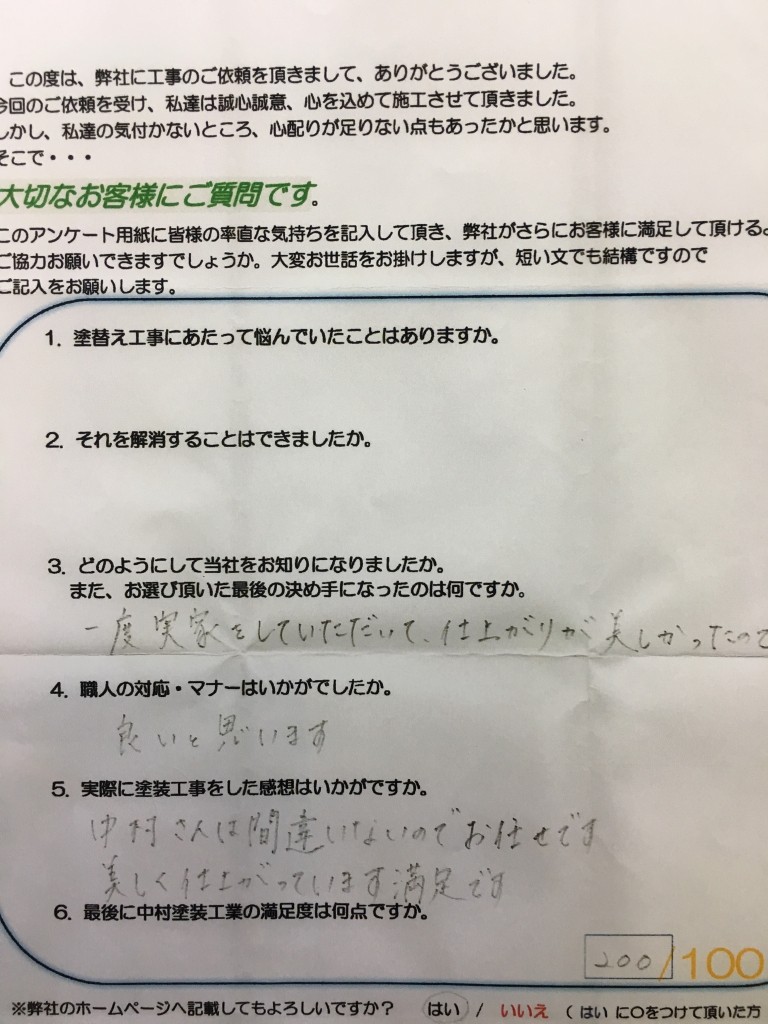 この度は、弊社に工事のご依頼を頂きまして、ありがとうございました。
今回のご依頼を受け、私達は誠心誠意、心を込めて施工させて頂きました。
しかし、私達の気付かないところ、心配りが足りない点もあったかと思います。
そこで・・・
大切なお客様にご質問です。
このアンケート用紙に皆様の率直な気持ちを記入して頂き、弊社がさらにお客様に満足して頂ける
ご協力お願いできますでしょうか。大変お世話をお掛けしますが、短い文でも結構ですので
ご記入をお願いします。
1. 塗替え工事にあたって悩んでいたことはありますか。
2. それを解消することはできましたか。
3. どのようにして当社をお知りになりましたか。
また、お選び頂いた最後の決め手になったのは何ですか。
一度実家をしていただいて、仕上がりが美しかったので
4. 職人の対応・マナーはいかがでしたか。
良いと思います
5. 実際に塗装工事をした感想はいかがですか。
中村さんは間違いないのでお任せです
美しく仕上がっています満足です
6. 最後に中村塗装工業の満足度は何点ですか。
200/100
※弊社のホームページへ記載してもよろしいですか？ はい / いいえ （はい に〇をつけて頂いた方